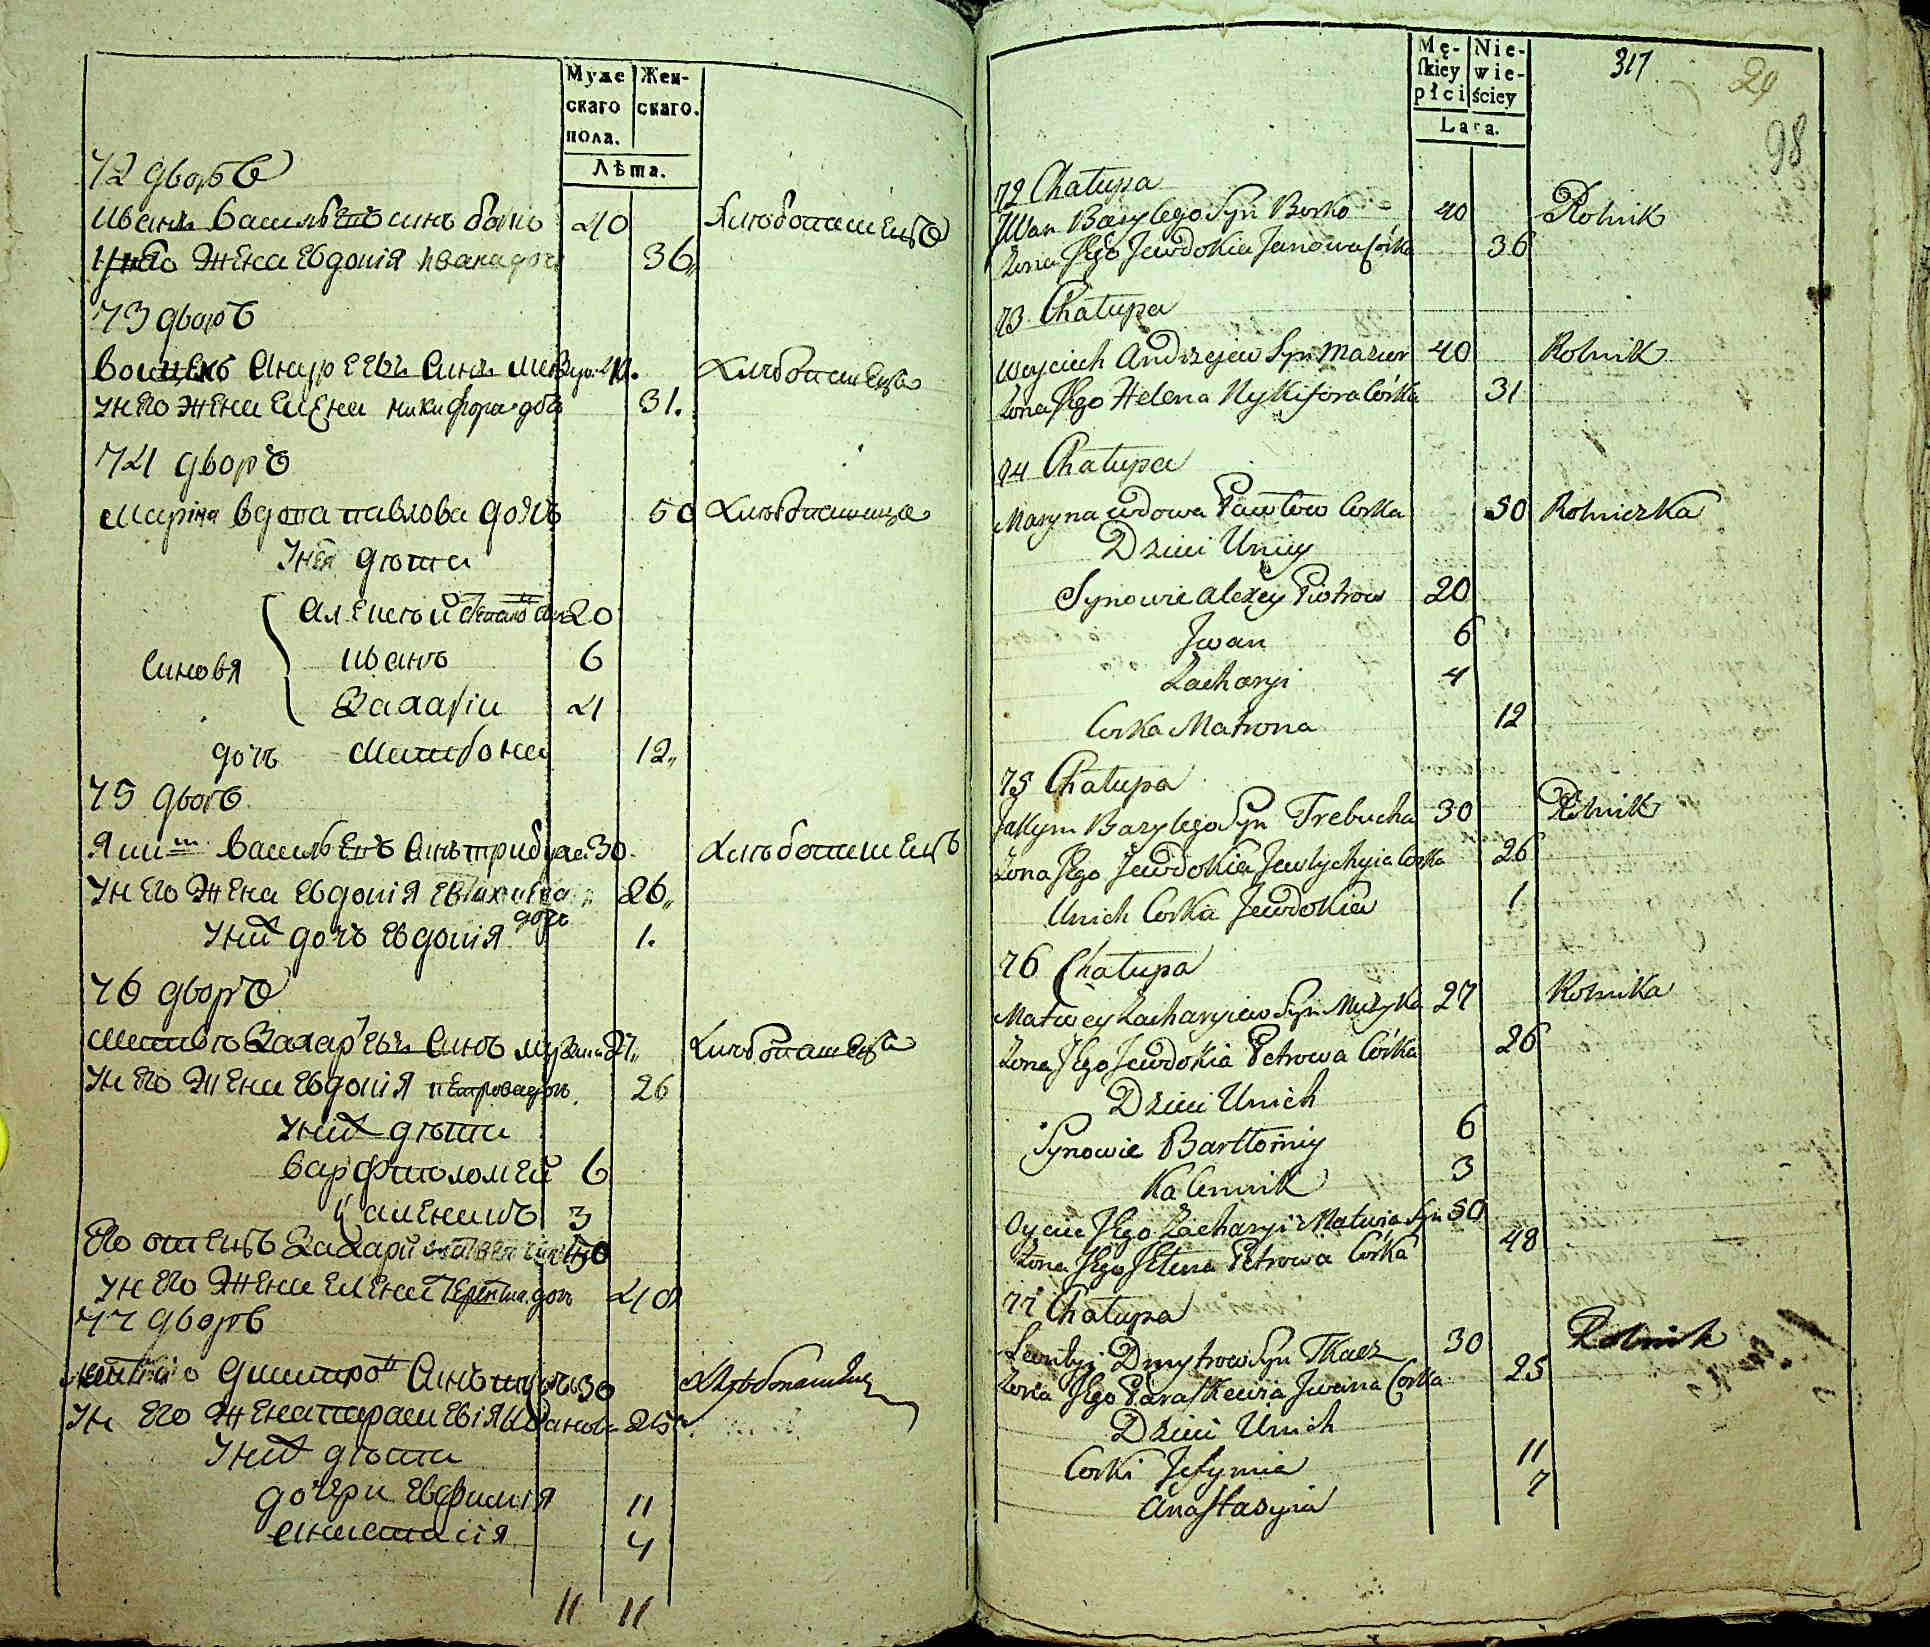 Муже Жен-
скаго скаго.
пола.
Лѣта.
72 дворъ
Иванъ Васильевъ синъ 40 хлѣбопашецъ
Унего жена Евдокія Ивана доч 36
73 дворъ
Войцехъ Андреевъ Синъ Мазур 40. хлѣбопашецъ
Унего жена Елена Никифора доч 31.
74 дворъ
Марина вдова павлова дочь 50 хлѣбопашица
Унея дѣти
Алексѣй 20
Синовя Иванъ 6
Захарій 4
дочъ Матрона 12
75 дворъ
Яким Васильевъ Синъ трибуха 30. хлѣбопашецъ
Унего жена Евдокія 26
дочъ
Уних дочъ Евдокія 1.
76 дворъ
Матвей Захарьевъ Синъ музика 27 хлѣбопашецъ
Унего жена Евдокія петрова дочъ 26
Уних дѣти
Варфтоломей 6
Каленикъ 3
Его отецъ Захарий 50
Унего жена Елена дочъ 48
77 дворъ
Дмитров Синъ ткачъ 30 Хлѣбопашец
Ун его жена параскевія Иванов 25
Уних дѣти
дочери Евфимія 11
Анастасія 7
11 11
Mę- Nie-
ſkiey wie-
płci ściey
Lata.
317
29
98
72 Chałupa
Jwan Bazylego Syn Borko 40 Rolnik
Zona Jego Jewdokia Janowa Córka 36
73 Chałupa
Woyciech Andrzejew Syn Mazur 40 Rolnik
Zona Jego Helena Nykifora Córka 31
74 Chałupa
Maryna wdowa Pawłow Corka 50 Rolniczka
Dzieci Uniey
Synowie Alexey Piotrow 20
Jwan 6
Zacharyi 4
Corka Matrona 12
75 Chałupa
Jakym Bazylego Syn Trebucha 30 Rolnik
Zona Jego Jewdokia Jewtychyia Corka 26
Unich Corka Jewdokia 1
76 Chałupa
Matwey Zacharyiew Syn Muzyka 27 Rolnika
Zona Jego Jewdokia Petrowa Córka 26
Dzieci Unich
Synowie Bartłomiy 6
Kalennik 3
Oyciec Jego Zacharyi Matwia Syn 50
Zona Jego Helena Petrowa Corka 48
77 Chałupa
Leontyi Dmytrow Syn Tkacz 30 Rolnik
Zona Jego Paraskewia Jwana Corka 25
Dzieci Unich
Corki Jefymia 11
Anastasyia 7